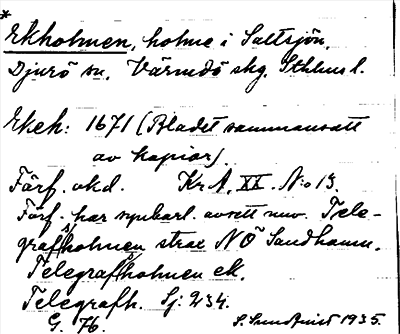 * Ekholmen, holme i Saltsjön,
Djurö sn, Värmdö skg, Sthlms l.
Ekeh: 1671 (Bladet sammansatt
av kopior).
Förf. okd. Kr A, XX. N:o 13.
Förf. har uppenbarl. avsett nuv. Tele-
grafholmen strax NÖ Sandhamn.
Telegrafholmen ek.
Telegrafh. Sj: 234.
G. 76.
S. Sundqvist 1935.